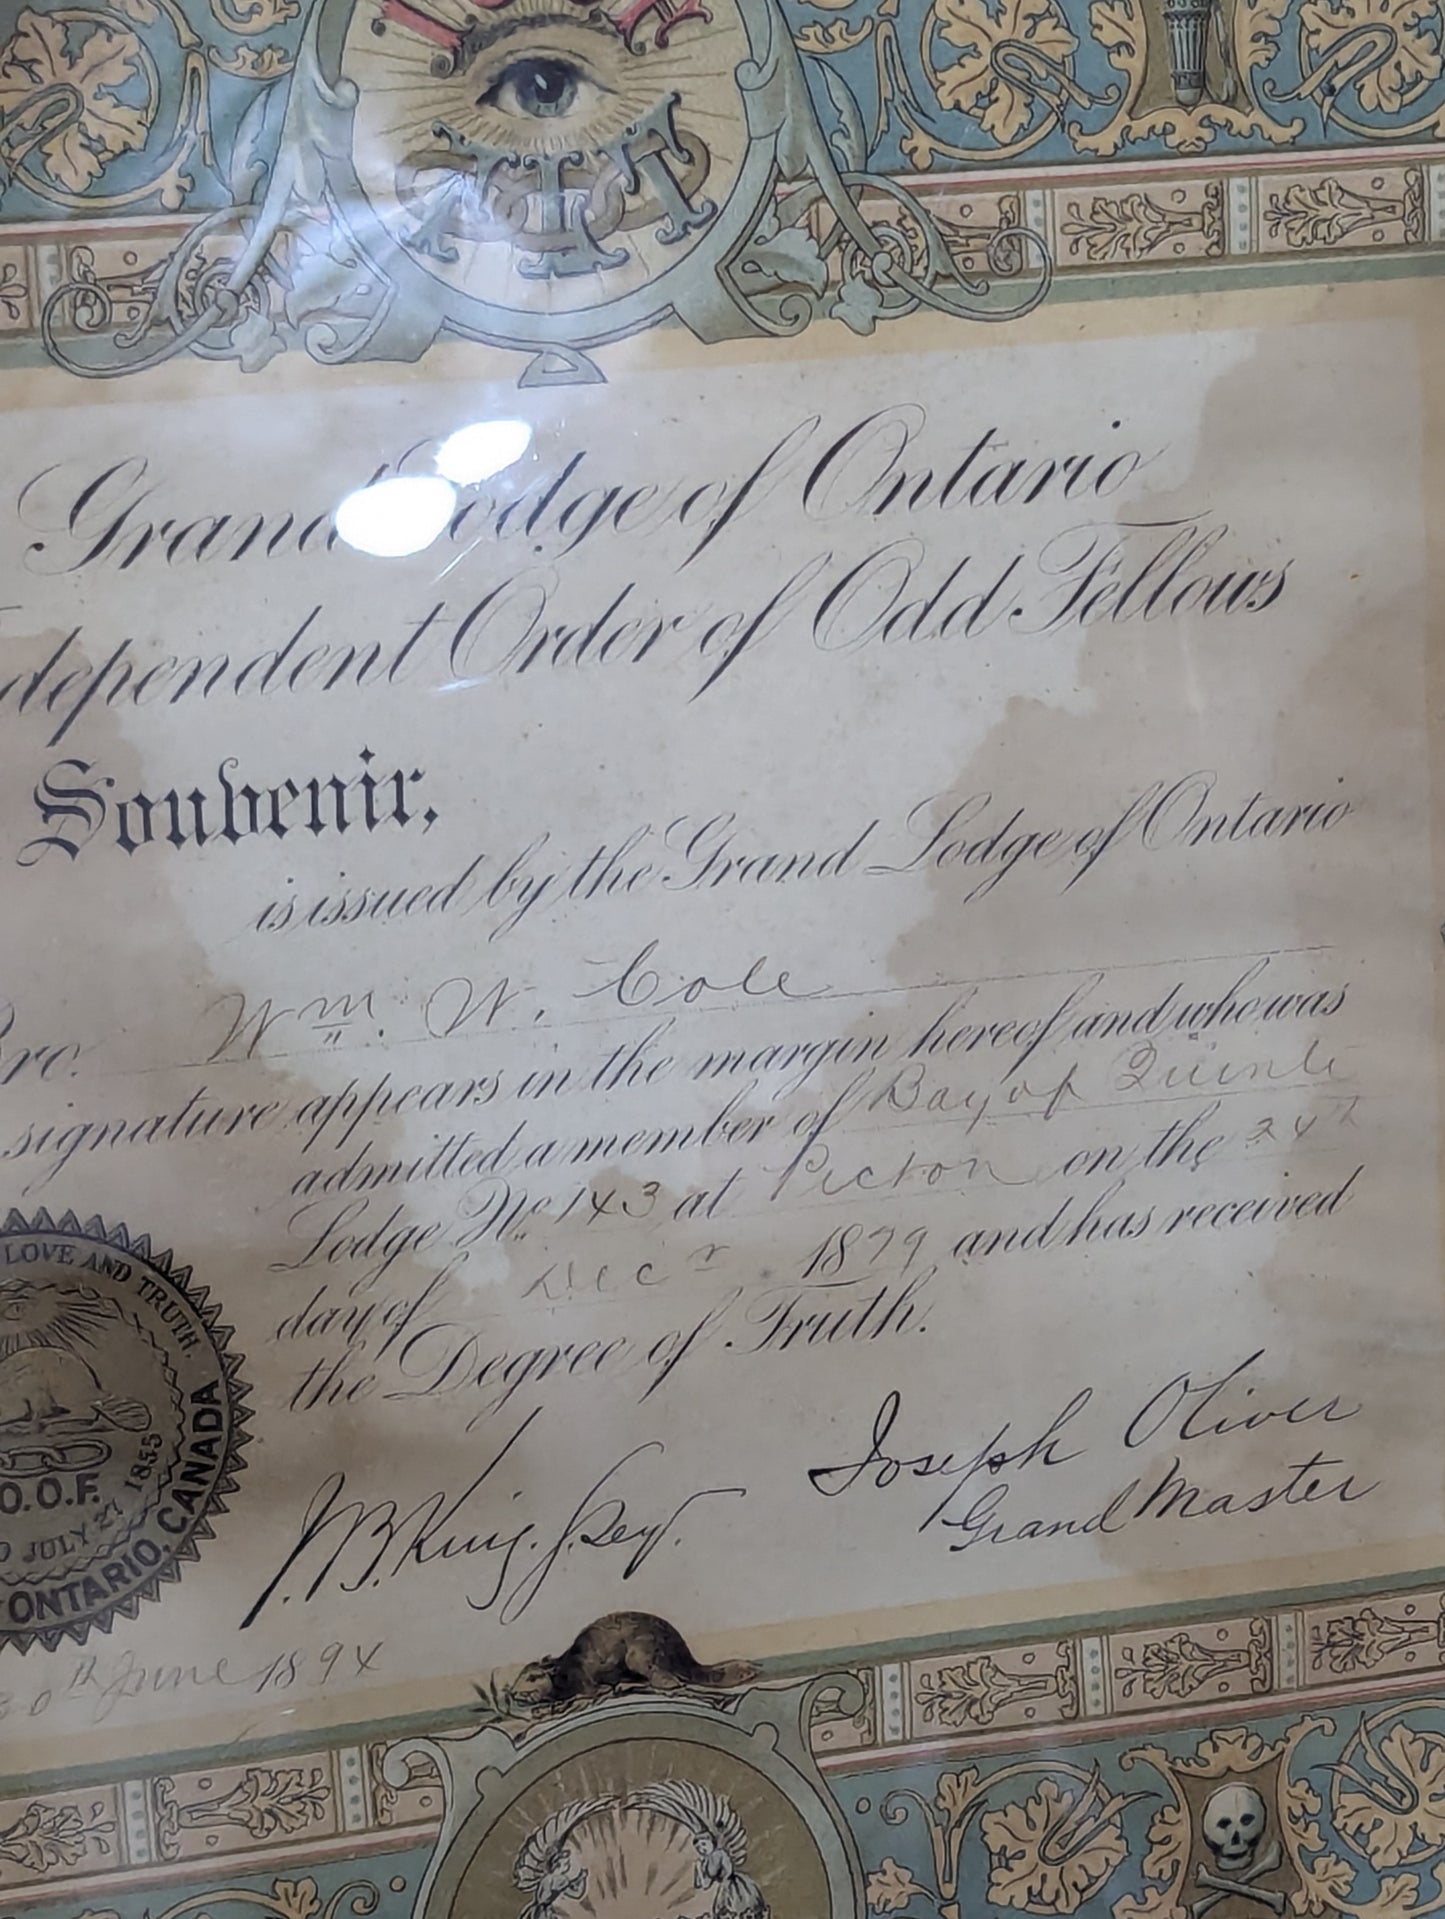 Grand Lodge of Ontario
dependent Order of Odd Fellows
Souvenir,
is issued by the Grand Lodge of Ontario
Bro. Wm. W. Cole
signature appears in the margin hereof and who was
admitted a member of Bay of Quinte
Lodge No. 143 at Picton on the 24th
day of Decr 1879 and has received
the Degree of Truth.
LOVE AND TRUTH.
O.O.F.
JULY 27 1855
ONTARIO, CANADA
J. B. King. G. Secy.
Joseph Oliver
Grand Master
30th June 1894